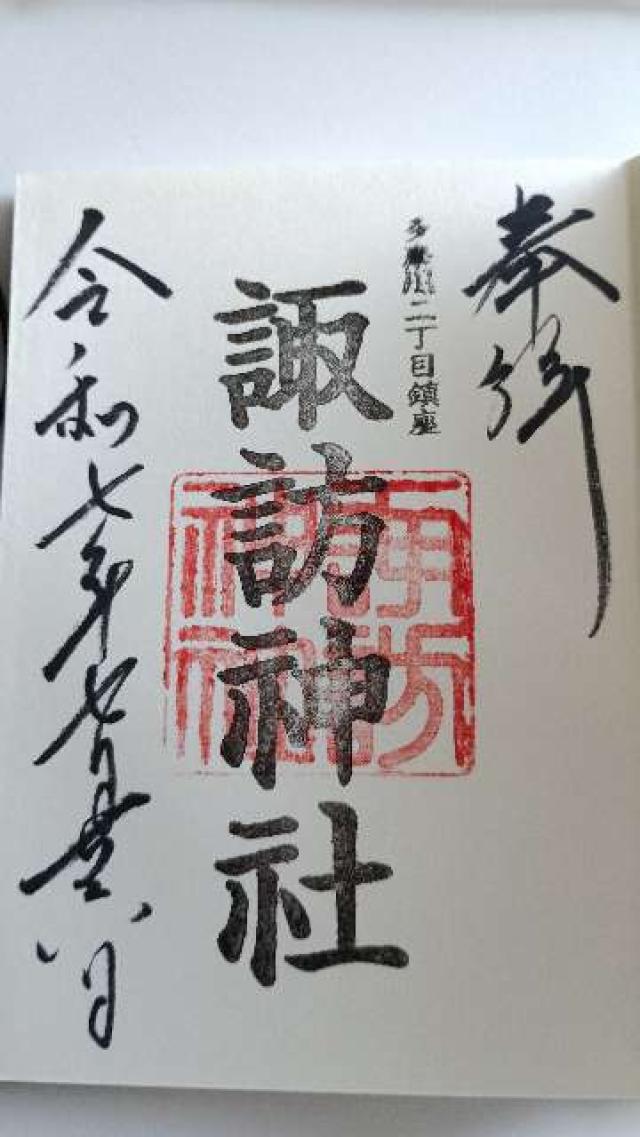 奉拝
多摩川二丁目鎮座
諏訪神社
諏訪
神社
令和七年七月 日